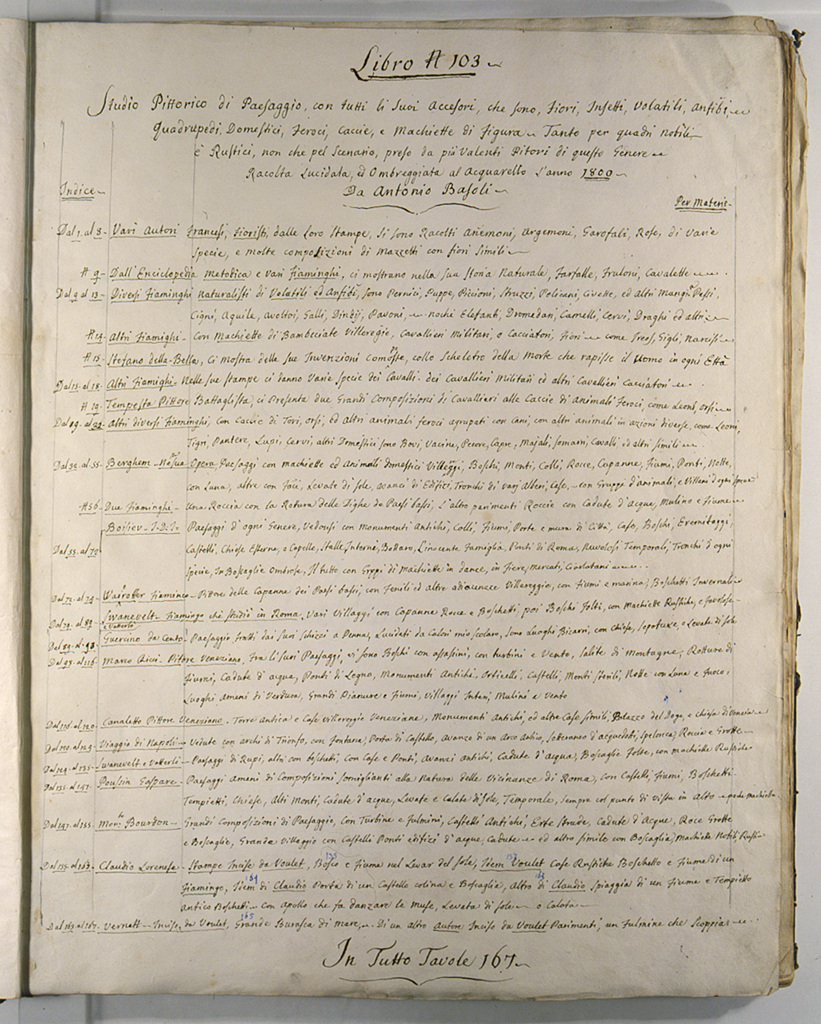 Libro N 103
Studio Pittorico di Paesaggio, con tutti li Suoi Accesori, che sono, Fiori, Insetti, Volatili, Anfibi
Quadrupedi, Domestici, Feroci, Caccie, e Machiette di Figura Tanto per quadri nobili
e Rustici, non che pel Scenario, preso da più Valenti Pitori di questo Genere
Racolta Lucidata, ed Ombreggiata al Acquarello l'anno 1800
Da Antonio Basoli
Indice
Per Materie
Dal 1. al 8 Vari Autori Francesi, Fioristi, dalle Loro Stampe, Si sono Racolti Anemoni, Argemoni, Garofali, Rose, di Varie
Specie, e molte composizioni di Mazzetti con fiori Simili
N 9 Dall'Enciclopedia Metodica e vari Fiaminghi, ci mostrano nella sua Storia Naturale, Farfalle, Fruloni, Cavalette
Dal 9 al 13 Diversi Fiaminghi naturalisti di Volatili ed Anfibi, sono Pernici, Puppe, Piccioni, Struzzi, Pelicani, Civette, ed altri Pesci,
Cigni, Aquile, Avoltoi, Galli, Dindii, Pavoni, nochi Elefanti, Dromedari, Camelli, Cervi, Draghi ed altri
N 14 Altri Fiamighi con Machiette di Bambociate Villeregie, Cavallieri Militari, o Cacciatori, Fiori come Ireos, Gigli, Narcisi
N 15 Stefano della Bella, Ci mostra delle sue Invenzioni composte, collo Scheletro della Morte che rapisse il Uomo in ogni Età
Dal 15 al 18 Altri Fiamighi Nelle sue stampe ci danno Varie Specie dei Cavalli dei Cavallieri Militari ed altri Cavallieri Cacciatori
N 19 Tempesta Pittore Battaglista, ci Presenta due Grandi Composizioni di Cavallieri alle Caccie di Animali Feroci, come Leoni, orsi
Dal 19 al Altri diversi Fiaminghi, con Caccie di Tori, orsi, ed altri animali feroci agrupati con Cani, con altri animali in azioni diverse, come Leoni,
Tigri, Pantere, Lupi, Cervi, altri Domestici sono Bovi, Vacine, Pecore, Capre, Majali, Somarri, Cavalli, ed altri simili
Berghem Opera, Paesaggi con machiette ed Animali domestici Villeggi, Boschi, Monti, Colli, Rocce, Capanne, Fiumi, Ponti, Notte,
con Luna, altre con Foci, Levate di Sole, avanzi di Edifizi, Tronchi di vari Alberi, Case, con Gruppi d'animali, e Villani d'ogni specie
N 56 Due Fiaminghi Una Roccia con la Rotura delle Dighe da Paesi bassi, L'altro parimenti Roccie con Cadute d'acque, Mulino e Fiume
Paesaggi d'ogni Genere, Vedonsi con Monumenti Antichi, Colli, Fiumi, Porte e mura di Città, Case, Boschi, Eremitaggi,
Castelli, Chiese Esterne, e Capelle, Stalle Interni, Innocente Famiglia, Ponti di Roma, Nuvolosi Temporali, Tronchi d'ogni
Specie, In Boscaglie Ombrose, Il tutto con Gruppi di Machiette in danze, in Fiere, Mercati, Ciarlatani
Wairoter Fiamingo Pitore delle Capanne dei Paesi bassi, con Fenili ed altre adiacenze Villereggie, con Fiumi e marina, Boschetti Invernali
Swanevelt Fiamingo che studiò in Roma Vari Villaggi con Capanne Rocce e Boschetti, poi Boschi Folti, con Machiette Rustiche, e favolose
Guercino da Cento Paesaggio tratti dai suoi Schizzi a Penna, Lucidati da Calori mio scolaro, sono Luoghi Bizarri, con Chiese, Sepolture, e Levate di Sole
Marco Ricci Pitore Veneziano, Fra li suoi Paesaggi, vi sono Boschi con assassini, con turbini e Vento, Salite di Montagne, Rotture di
Fiumi, Cadute d'acqua, Ponti di Legno, Monumenti Antichi, Orticelli, Castelli, Monti sterili, Notte con Luna e fuoco,
Luoghi ameni di Verdura, Grandi Pianure e Fiumi, Villaggi Interi, Mulini e Vento
Canaletto Pittore Veneziano, Torre Antica e Case Villereggie Veneziane, Monumenti Antichi, ed altre Case simili Palazzo del Doge, e Chiesa di Venezia
Viaggio di Napoli Vedute con archi di Trionfo, con Fontana, Porta di Castello, Avanzo di un Arco Antico, Sotteraneo d'acquedoti, Spelonca, Roccie e Grotte
Swanevelt e Vatterli Paesaggi di Rupi, altri con boschetti, Con Case e Ponti, Avanzi Antichi, Cadute d'acqua, Boscaglie Folte, con machiette Rustiche
Poussin Gaspare Paesaggi Ameni di Composizioni Somiglianti alla Natura delle Vicinanze di Roma, con Castelli, Fiumi, Boschetti
Tempietti, Chiese, Alti Monti, Cadute d'acque, Levate e Calate di Sole, Temporale, Sempre col punto di Vista in alto e poche machiette
Bourdon Grandi Composizioni di Paesaggio, con Turbine e Fulmini, Castelli Antichi, Erte strade, Cadute d'Acque, Roce Grotte
e Boscaglie, Grande Villaggio con Castelli Ponti edifizi d'acque, Cadute ed altro simile con Boscaglia, Machiette Nobili, Rusti
Claudio Lorenese Stampe Incise da Voulet, Bosco e fiume nel Levar del Sole, Idem Voulet Case Rustiche Boschetto e Fiume di un
Fiamingo, Idem di Claudio Porta di un Castello colina e Boscaglia, Altro di Claudio Spiaggia di un Fiume e Tempietto
Antico Boschetti con Apollo che fa danzare le Muse, Levata di Sole o Calata
Dal 163 al 167 Vernett Incise, da Voulet, Grande Burasca di Mare, Di un altro Autore Inciso da Voulet Parimenti, un Fulmine che Scoppia
In Tutto Tavole 167